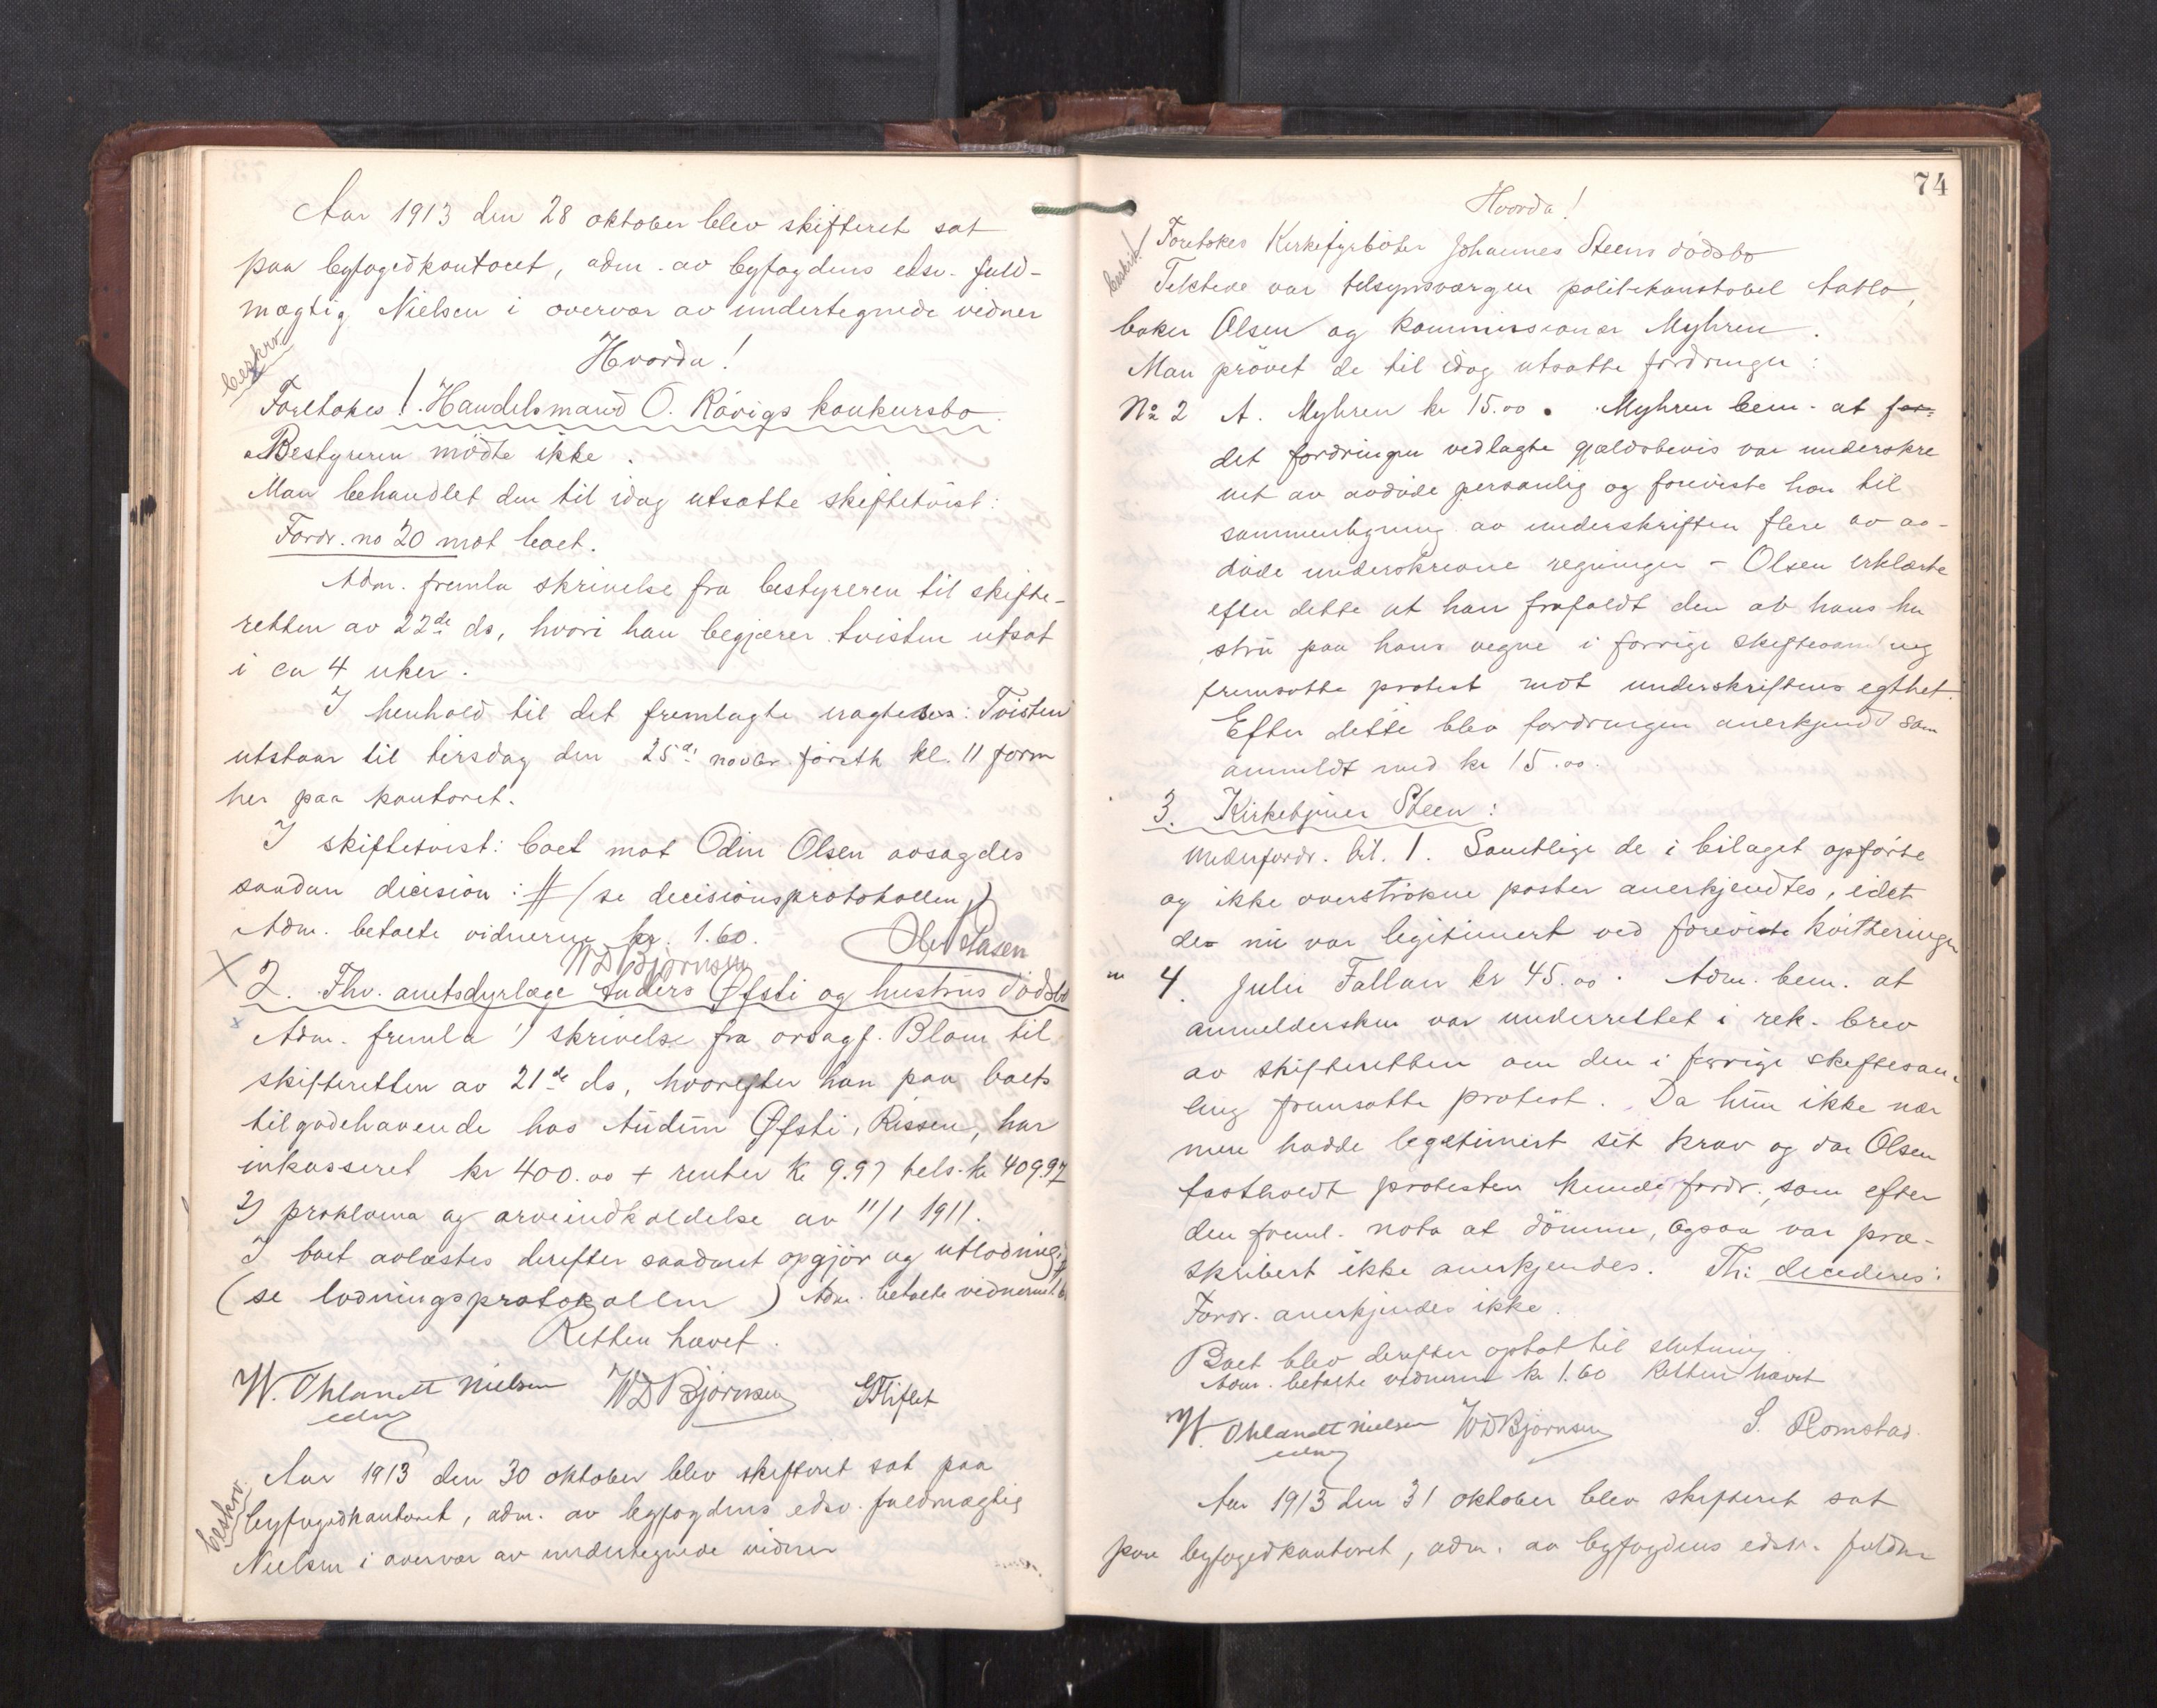 Aar 1913 den 28 oktober blev skifteret sat
paa byfogedkontoret, adm. av byfogdens edsv. fuld-
mægtig Nielsen i overvær av undertegnede vidner
beskrv.
Hvorda!
Foretokes 1. Handelsmand O. Røvigs konkursbo.
Bestyreren mødte ikke.
Man behandlet den til idag utsatte skiftetvist:
Fordr. no 20 mot boet.
Adm. fremla skrivelse fra bestyreren til skifte-
retten av 22de ds, hvori han begjærer tvisten utsat
i ca 4 uker.
I henhold til det fremlagte eragtedes: Tvisten
utstaar til tirsdag den 25de novbr. førstk kl. 11 form
her paa kontoret.
I skiftetvist: boet mot Odin Olsen avsagdes
saadan decision: # (se decisionsprotokollen #)
Adm. betalte vidnerne kr. 1.60.
WD Bjørnsen
2. Fhv. amtsdyrlæge Anders Øfsti og hustrus dødsbo
Adm. fremla 1) skrivelse fra orsagf. Blom til
skifteretten av 21de ds, hvorefter han paa boets
tilgodehavende hos Audun Øfsti, Rissen, har
inkasseret kr 400.00 + renter kr 9.97 tels. kr 409.97
2) proklama og arveindkaldelse av 11/1 1911.
I boet avlæstes derefter saadant opgjør og utlodning: #
(se lodningsprotokollen) Adm. betalte vidnerne
Retten hævet.
W. Ohlandt Nielsen WD Bjørnsen
edsv
Aar 1913 den 30 oktober blev skifteret sat paa
beskrv.
byfogedkontoret, adm. av byfogdens edsv. fuldmægtig
Nielsen i overvær av undertegnede vidner
74
Hvorda!
beskrv!
Foretokes Kirkefyrbøter Johannes Steens dødsbo
Tilstede var tilsynsværgen politikonstabel Aatlo,
baker Olsen og kommissionær Myhren.
Man prøvet de til idag utsatte fordringer:
No 2 A. Myhren kr 15.00. Myhren bem. at for-
det fordringen vedlagte gjældsbevis var underskre
vet av avdøde personlig og foreviste han til
sammenligning av underskriften flere av av-
døde underskrevne regninger - Olsen erklærte
efter dette at han frafaldt den av hans hu
stru paa hans vegne i forrige skiftesamling
fremsatte protest mot underskriftens egthet.
Efter dette blev fordringen anerkjendt som
anmeldt med kr 15.00.
3. Kirketjener Steen:
Underfordr. bil. 1. Samtlige de i bilaget opførte
og ikke overstrøkne poster anerkjendtes, idet
de nu var legitimert ved foreviste kvitteringer
" 4. Julie Fallan kr 45.00. Adm. bem. at
anmeldersken var underrettet i rek. brev
av skifteretten om den i forrige skiftesam-
ling fremsatte protest. Da hun ikke nær
mere hadde legitimert sit krav og da Olsen
fastholdt protesten kunde fordr., som efter
den freml. nota at dømme, ogsaa var præ-
skribert ikke anerkjendes. Thi decideres:
Fordr. anerkjendes ikke.
Boet blev derefter optat til slutning.
Adm. betalte vidnerne kr 1.60 Retten hævet
W. Ohlandt Nielsen WD Bjørnsen S. Romstad.
edsv
Aar 1913 den 31 oktober blev skifteret sat
paa byfogedkontoret, adm. av byfogdens edsv. fuldm